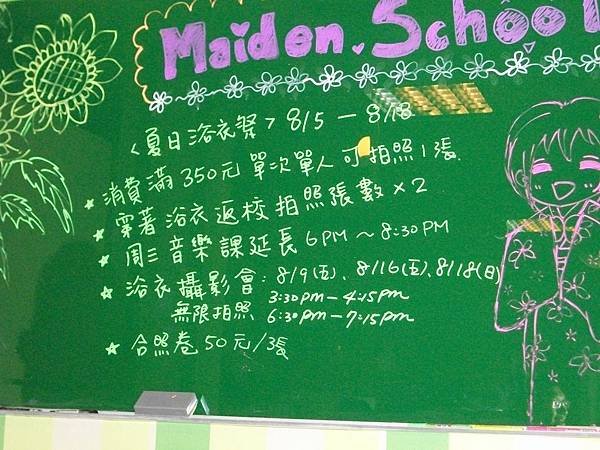 Maiden.School
<夏日浴衣祭> 8/5 — 8/18
★ 消費滿350元單次單人可拍照1張.
★ 穿著浴衣返校拍照張數×2
★ 周三音樂課延長6PM～8:30PM
★ 浴衣攝影會: 8/9(五)、8/16(五)、8/18(日)
3:30pm—4:15pm
無限拍照 6:30pm—7:15pm
★ 合照卷50元/張